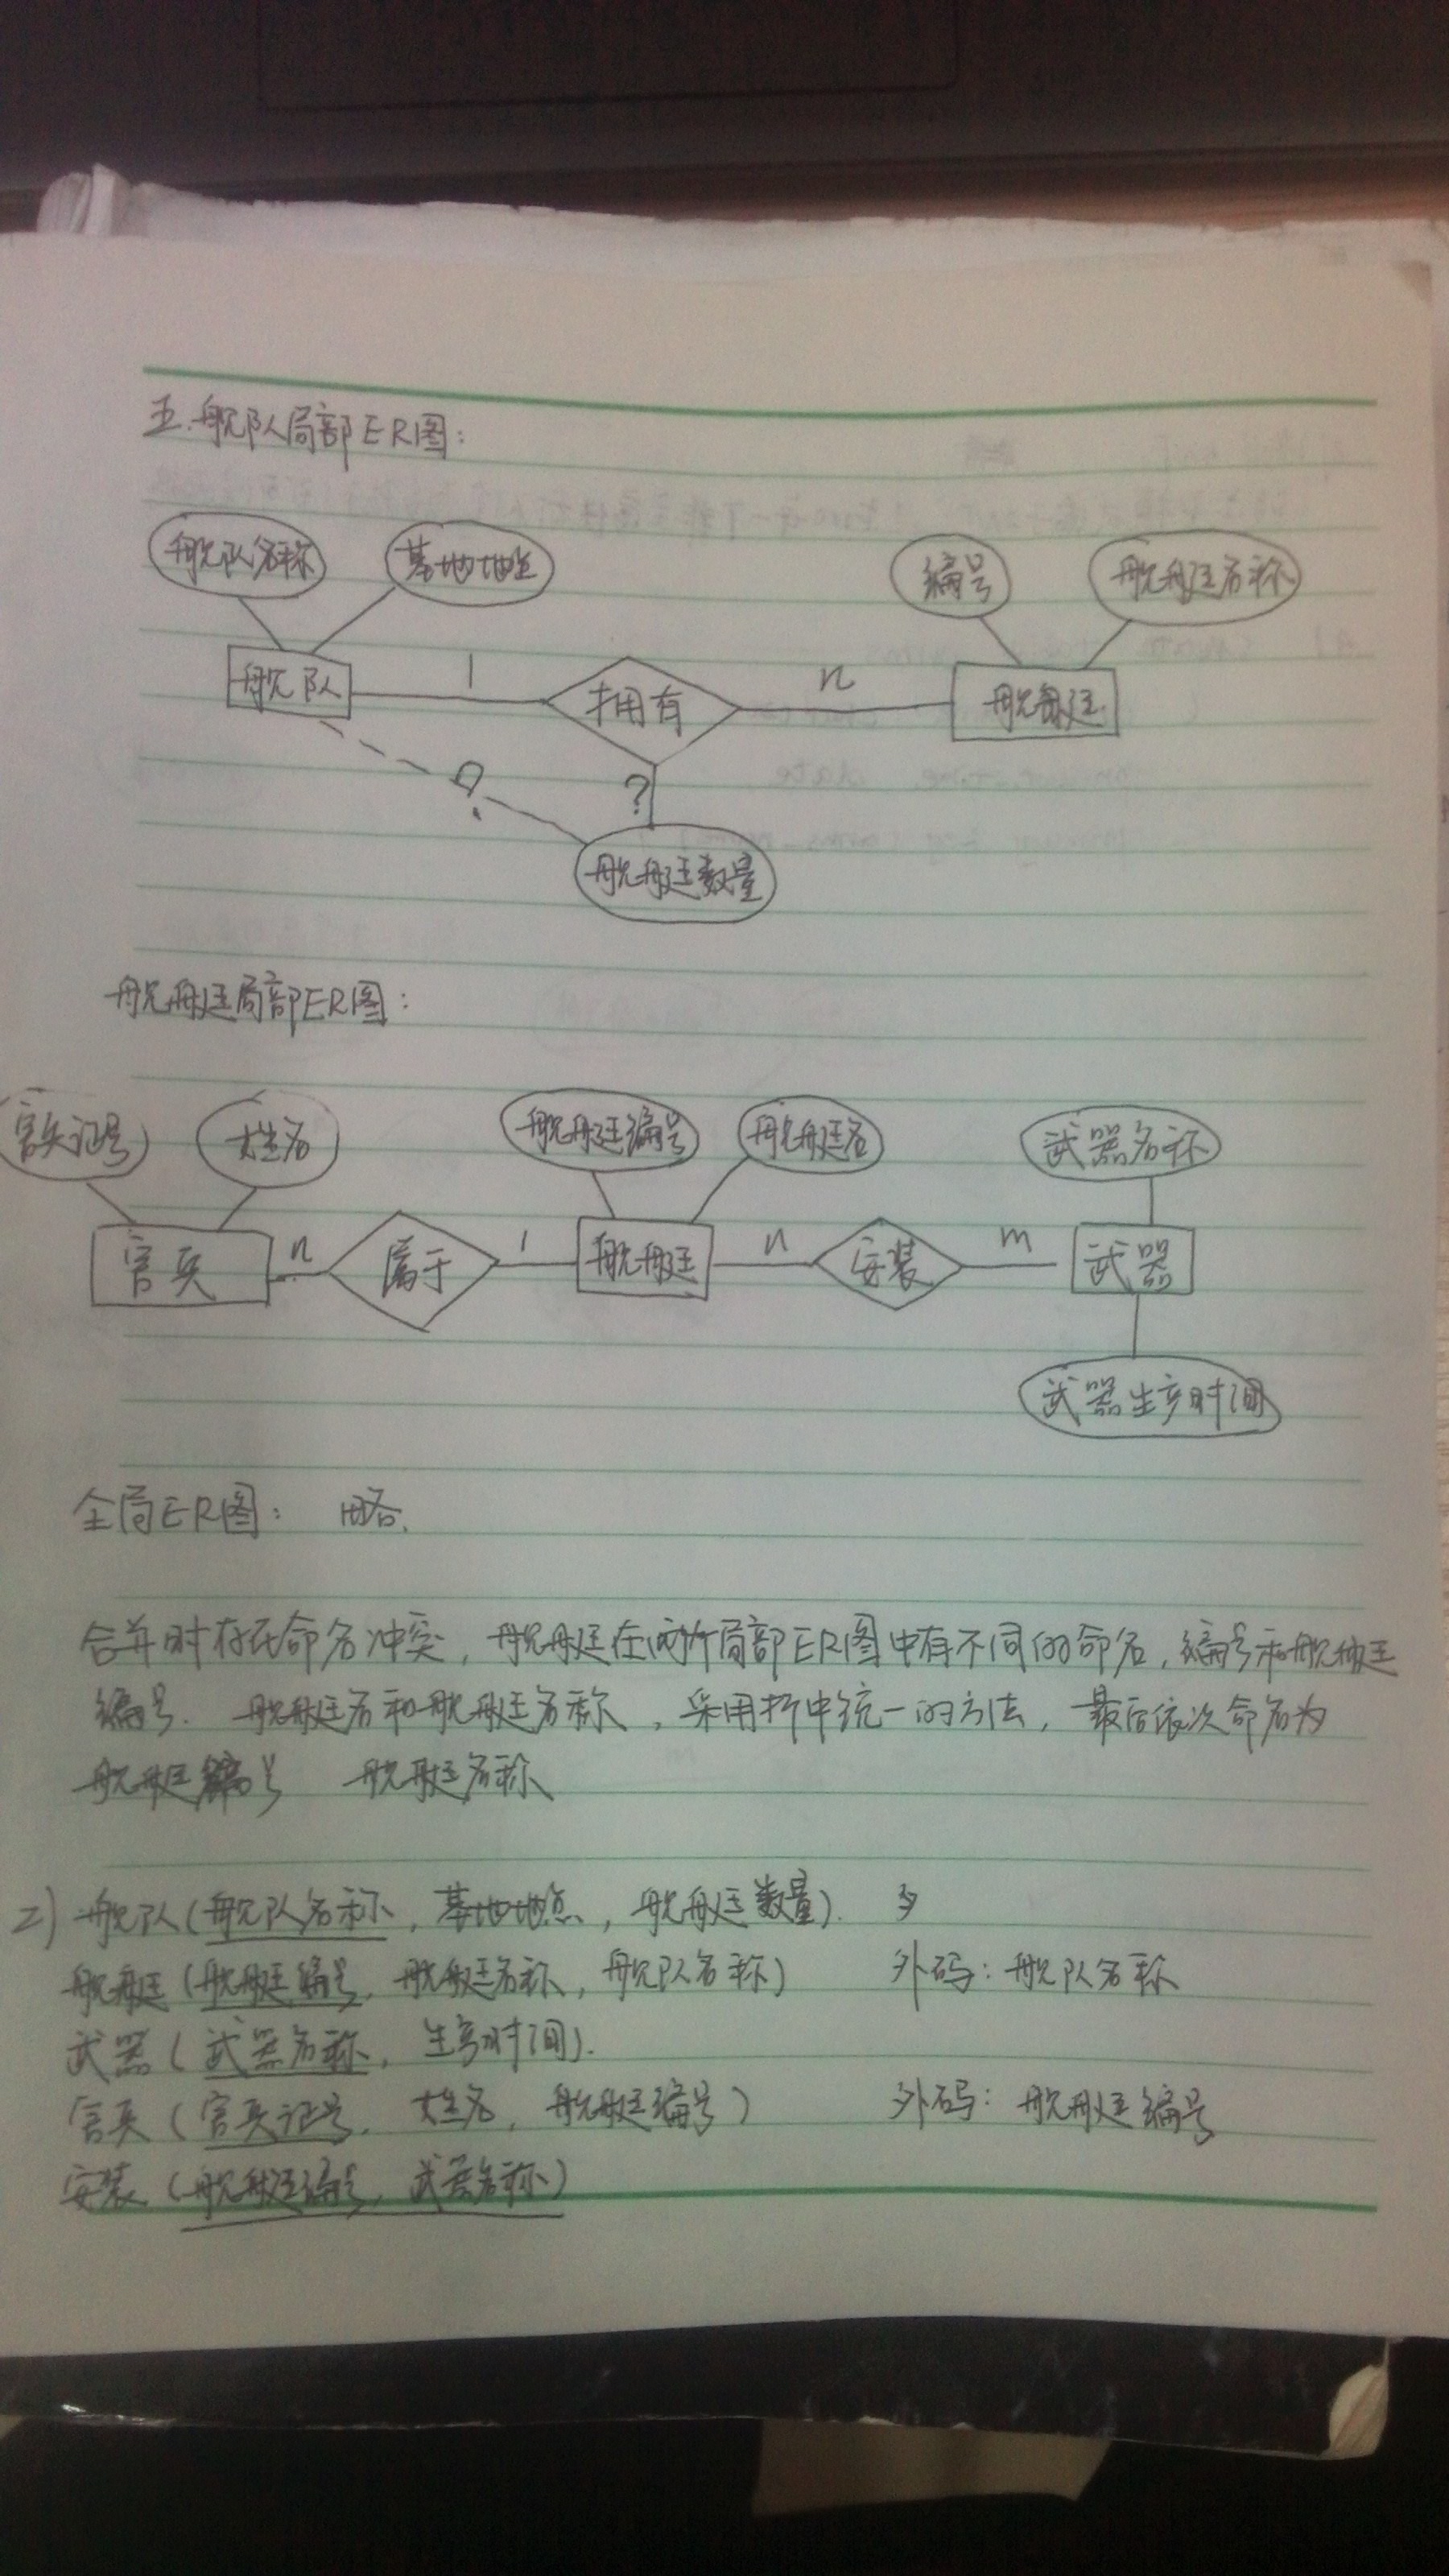 五.舰队局部ER图:
舰队名称 基地地点 编号 舰艇名称
舰队 1 拥有 n 舰艇
? ?
舰艇数量
舰艇局部ER图:
官兵证号 姓名 舰艇编号 舰艇名 武器名称
官兵 n 属于 1 舰艇 n 安装 m 武器
武器生产时间
全局ER图: 略.
合并时存在命名冲突,舰艇在两个局部ER图中有不同的命名,编号和舰艇
编号. 舰艇名和舰艇名称,采用折中统一的方法,最后依次命名为
舰艇编号 舰艇名称
2) 舰队(舰队名称,基地地点,舰艇数量).
舰艇(舰艇编号,舰艇名称,舰队名称) 外码:舰队名称
武器(武器名称,生产时间).
官兵(官兵证号,姓名,舰艇编号) 外码:舰艇编号
安装(舰艇编号,武器名称)